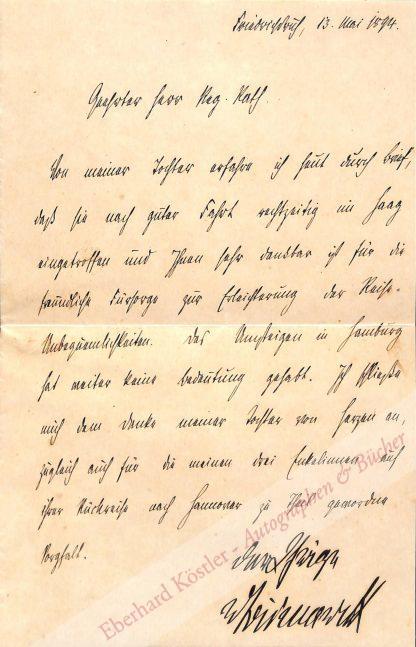 Friedrichsruh, 13. Mai 1894.
Geehrter Herr Reg. Rath.
Von meiner Tochter erfahre ich heut durch Brief,
daß sie nach guter Fahrt rechtzeitig im Haag
eingetroffen und Ihnen sehr dankbar ist für die
freundliche Fürsorge zur Erleichterung der Reise-
Unbequemlichkeiten. Das Umsteigen in Hamburg
hat weiter keine Bedeutung gehabt. Ich schließe
mich dem Danke meiner Tochter von Herzen an,
zugleich auch für die meinen drei Enkelinnen auf
ihrer Rückreise nach Hannover zu Theil gewordne
Sorgfalt.
Der Ihrige
vBismarck
Eberhard Köstler - Autographen & Bücher